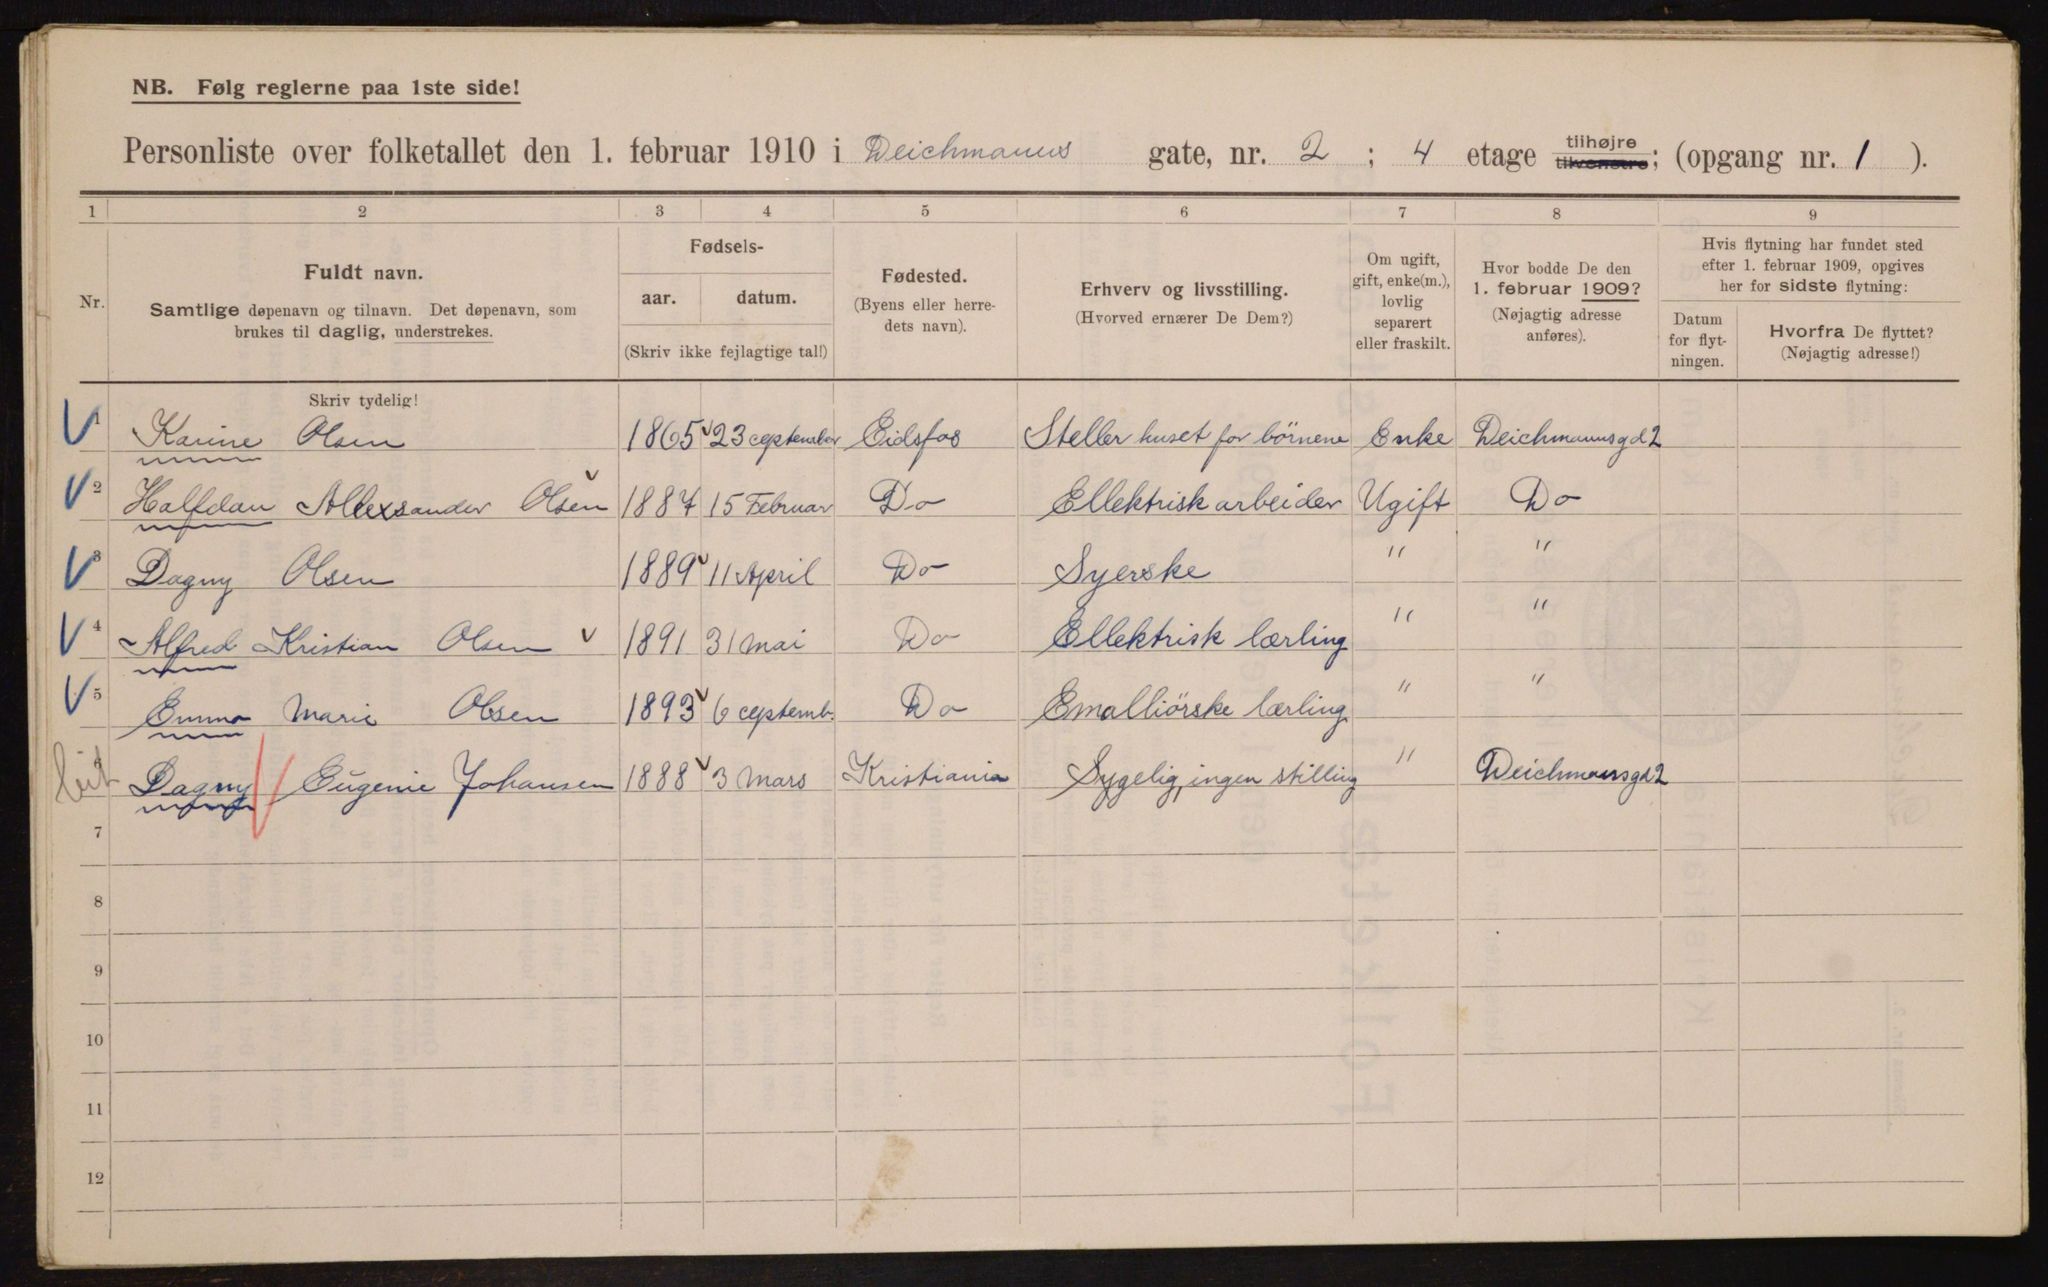 NB. Følg reglerne paa 1ste side!
Personliste over folketallet den 1. februar 1910 i Deichmanns gate, nr. 2 ; 4 etage tilhøjre tilvenstre; (opgang nr. 1 ).
1 2 3 4 5 6 7 8 9
Nr.
Fuldt navn.
Samtlige døpenavn og tilnavn. Det døpenavn, som
brukes til daglig, understrekes.
Fødsels-
aar. datum.
(Skriv ikke fejlagtige tal!)
Fødested.
(Byens eller herre-
dets navn).
Erhverv og livsstilling.
(Hvorved ernærer De Dem?)
Om ugift,
gift, enke(m.),
lovlig
separert
eller fraskilt.
Hvor bodde De den
1. februar 1909?
(Nøjagtig adresse
anføres).
Hvis flytning har fundet sted
efter 1. februar 1909, opgives
her for sidste flytning:
Datum
for flyt-
ningen.
Hvorfra De flyttet?
(Nøjagtig adresse!)
Skriv tydelig!
1 Karine Olsen 1865 23 ceptember Eidsfos Steller huset for börnene Enke Deichmannsgd 2
2 Halfdan Allexsander Olsen 1887 15 Februar Do Ellektrisk arbeider Ugift Do
3 Dagny Olsen 1889 11 April Do Syerske " "
4 Alfred Kristian Olsen 1891 31 mai Do Ellektrisk lærling " "
5 Emma Marie Olsen 1893 6 ceptemb. Do Emalliörske lærling " "
Dagny Eugenie Johansen 1888 3 Mars Kristiania Sygelig, ingen stilling " Deichmansgd 2
7
8
9
10
11
12